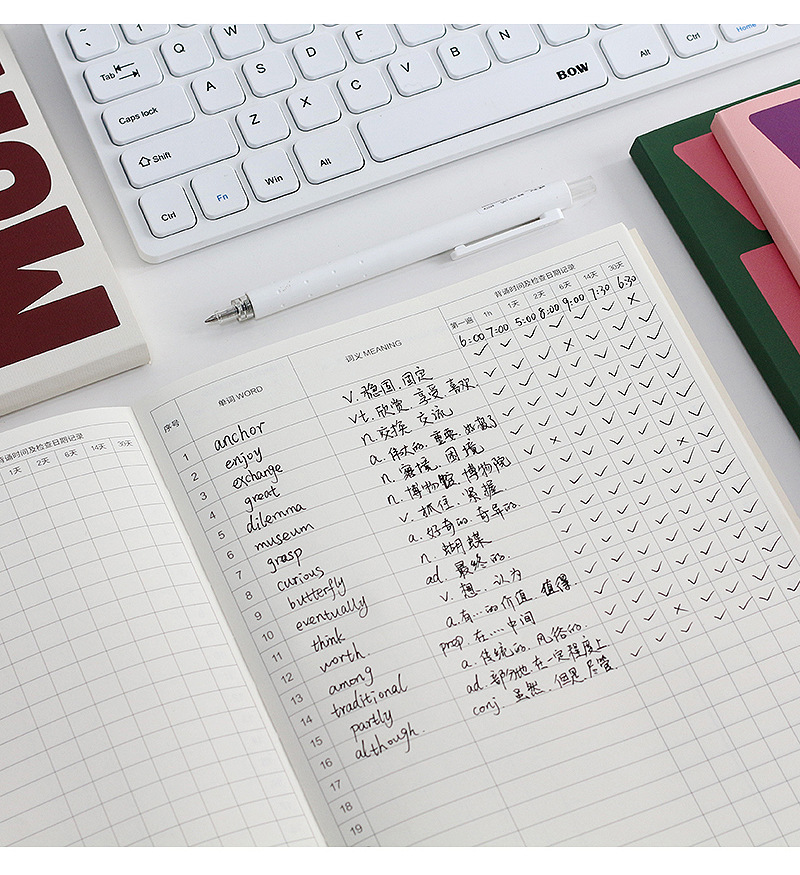 ~ `
! 1
Q
W
Tab
A
S
D
F
G
H
J
K
L
Caps lock
Z
X
C
V
B
N
Shift
BOW
Ctrl
Fn
Win
Alt
Alt
Ctrl
Home
背诵时间及检查日期记录
1天 2天 6天 14天 30天
背诵时间及检查日期记录
序号 单词 WORD 词义 MEANING 第一遍 1h 1天 2天 6天 14天 30天
6:00 7:00 5:00 8:00 9:00 7:30 6:30
1 anchor v. 稳固. 固定
2 enjoy vt. 欣赏. 享受. 喜欢.
3 exchange n. 交换. 交流
4 great a. 伟大的. 重要. 好极了
5 dilemma n. 窘境. 困境
6 museum n. 博物馆. 博物院
7 grasp v. 抓住. 紧握
8 curious a. 好奇的. 奇异的.
9 butterfly n. 蝴蝶
10 eventually ad. 最终的.
11 think v. 想.. 认为
12 worth. a. 有...的价值. 值得.
13 among prep. 在....中间
14 traditional a. 传统的. 风俗的.
15 partly ad. 部分地. 在一定程度上
16 although. conj. 虽然. 但是. 尽管.
17
18
19